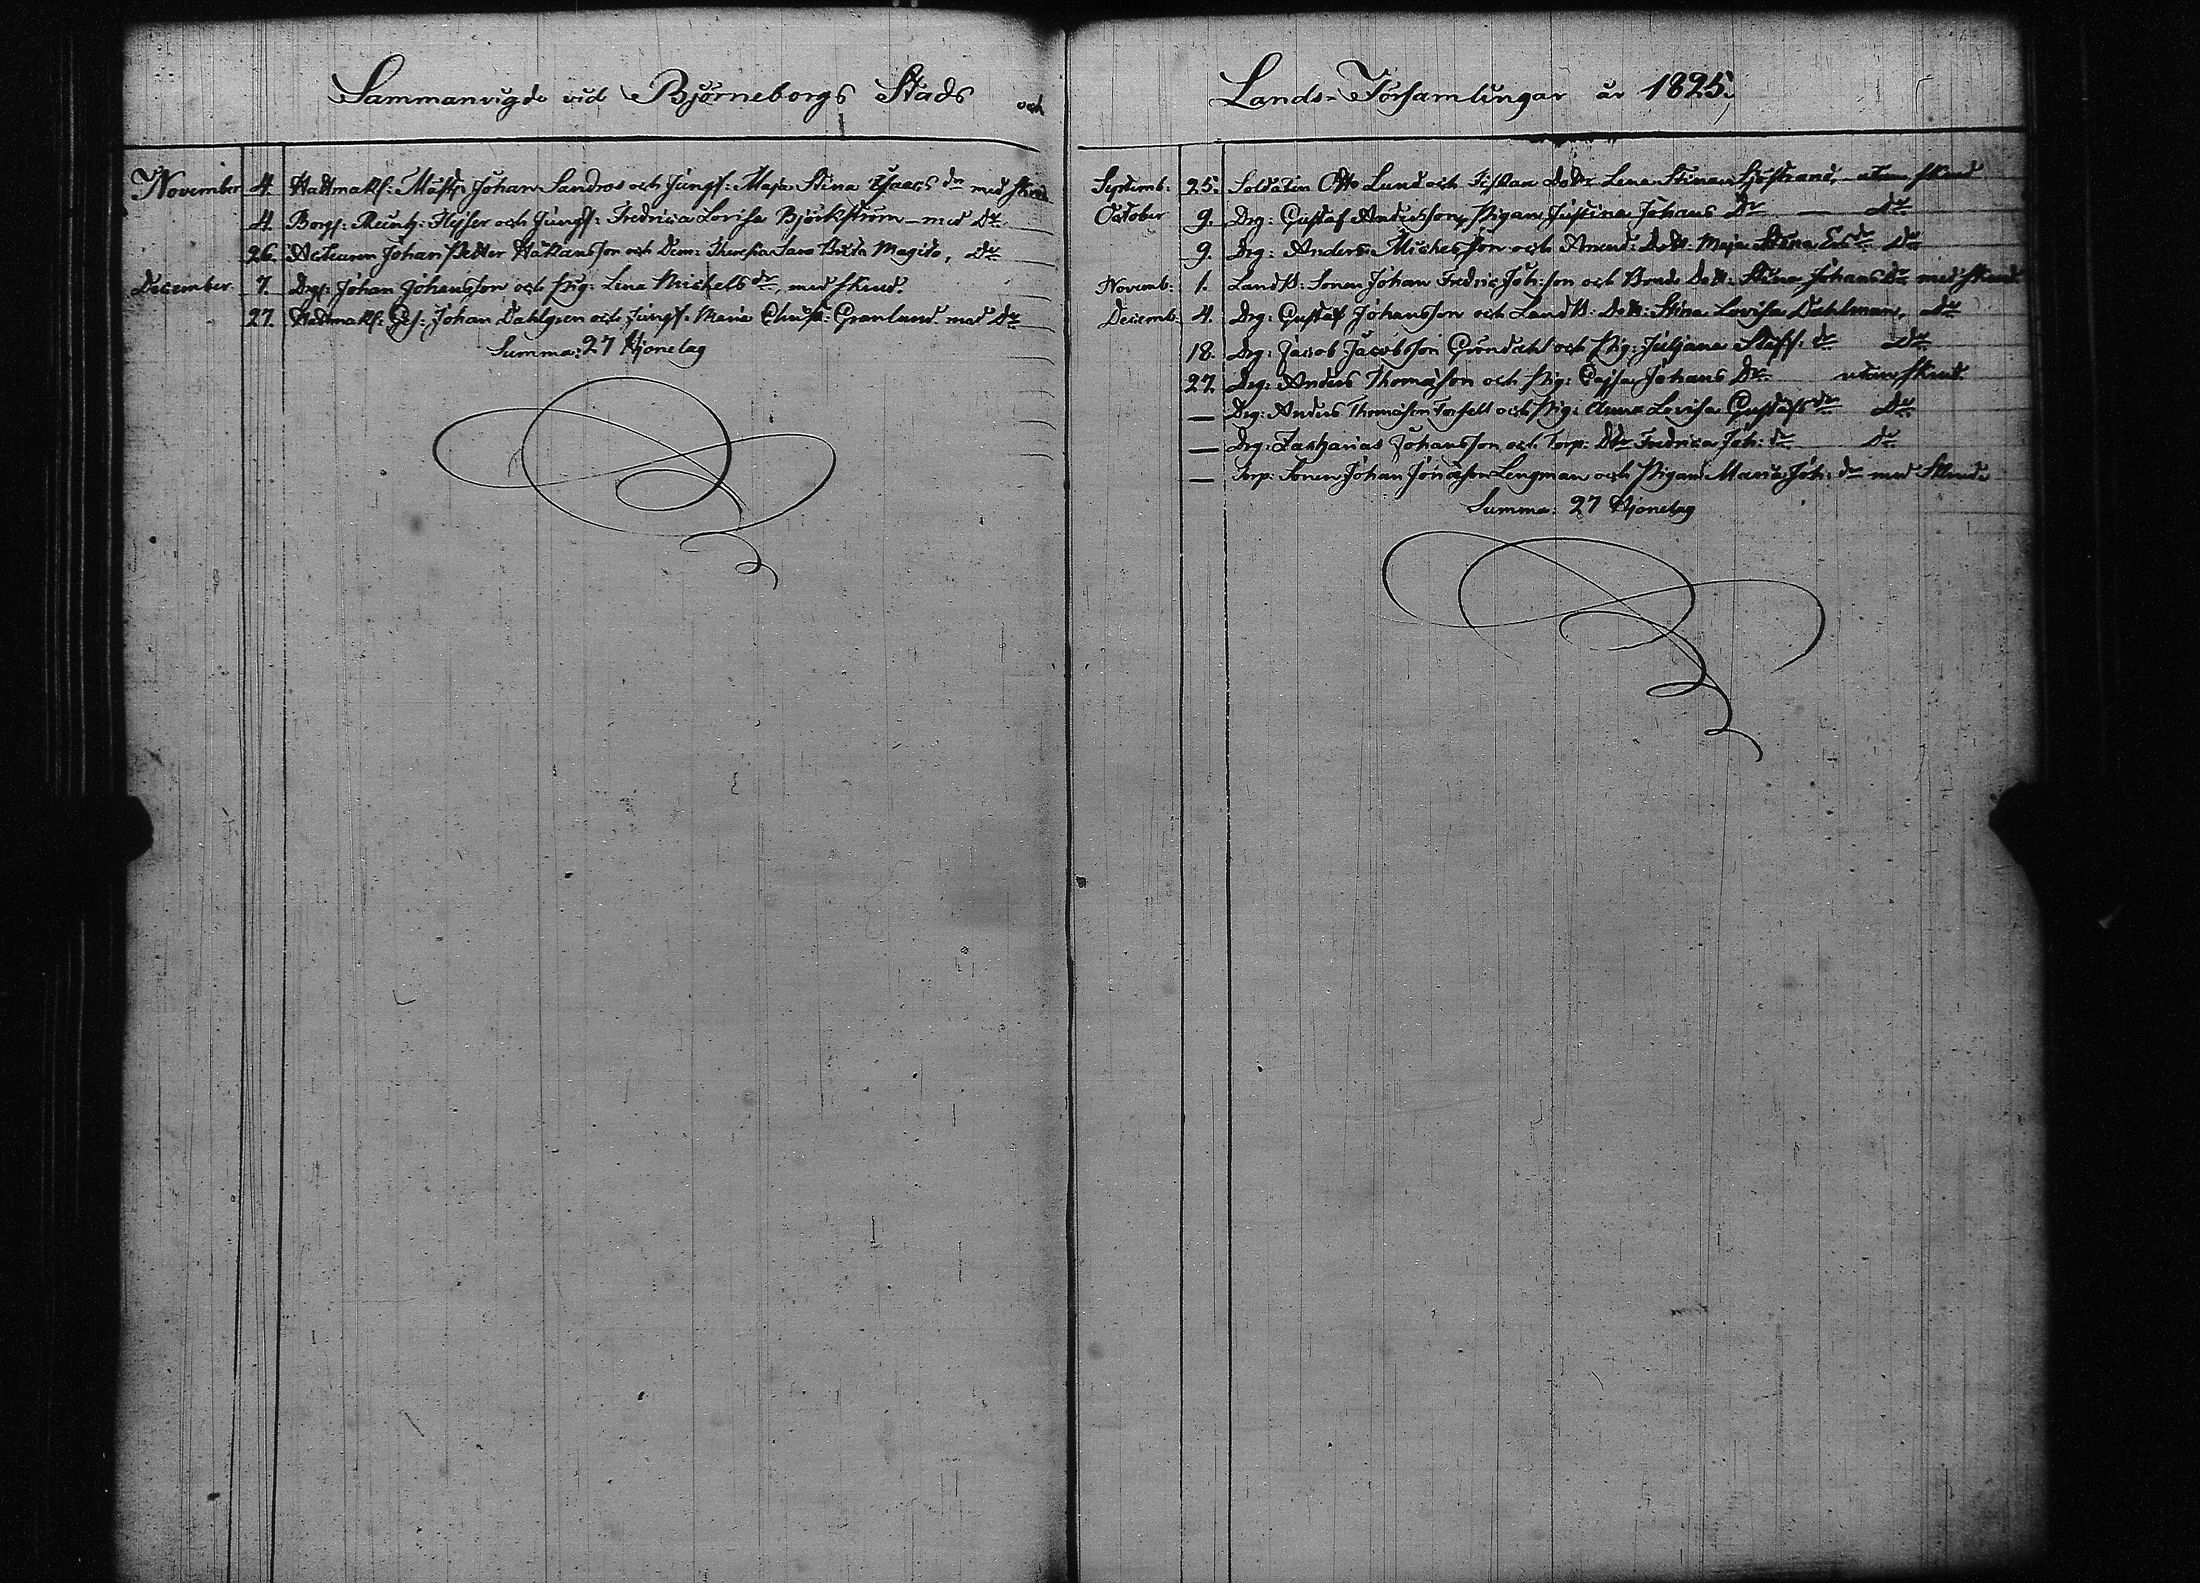 Sammanvigde vid Björneborgs Stads och
November 4. Hattmak: Mäst: Johan Sandros och Jungf: Maja Stina Isaacs dr med skrud
4. Borg: Heyser och Jungf: Fredrica Lovisa Björkström med Do
26. Actuarien Johan Petter Håkansson och Dem: Theresia Sara Magito, Do
December 7. Drg: Johan Johansson och Pig: Lena Michels dr med skrud
27. Hattmak: Ges: Johan Dahlgren och Jungf: Maria Christ: Granlund med Do
Summa: 27 Hjonelag
Lands-Församlingar år 1825.
Septemb: 25. Soldaten Otto Lund och Dottr Lena Stina Sjöstrand, utan skrud
October 9. Drg: Gustaf Andersson, Pigan Justina Johans Dr — Do
9. Drg: Anders Michelsson och Dott: Maja Stina Do
Novemb: 1. Landb: Sonen Johan Fredric Joh:son och Bonde Dott: Stina Johans Dr med skrud
Decemb: 4. Drg: Gustaf Johansson och Landb: Dott: Stina Lovisa Dahlman, Do
18. Drg: Jacob Jacobsson Gröndahl och Pig: Juljana Staff: dr Do
27. Drg: Anders Thomasson och Pig: Cajsa Johans Dr utan skrud
— Drg: Anders Thomasson Forsell och Pig: Anna Lovisa Gustafs dr Do
— Drg: Zacharias Johansson och Torp: Dtr Fredrica Joh: dr Do
— Torp: Sonen Johan Jonasson Lengman och Pigan Maria Joh: dr med Skrud
Summa: 27 Hjonelag